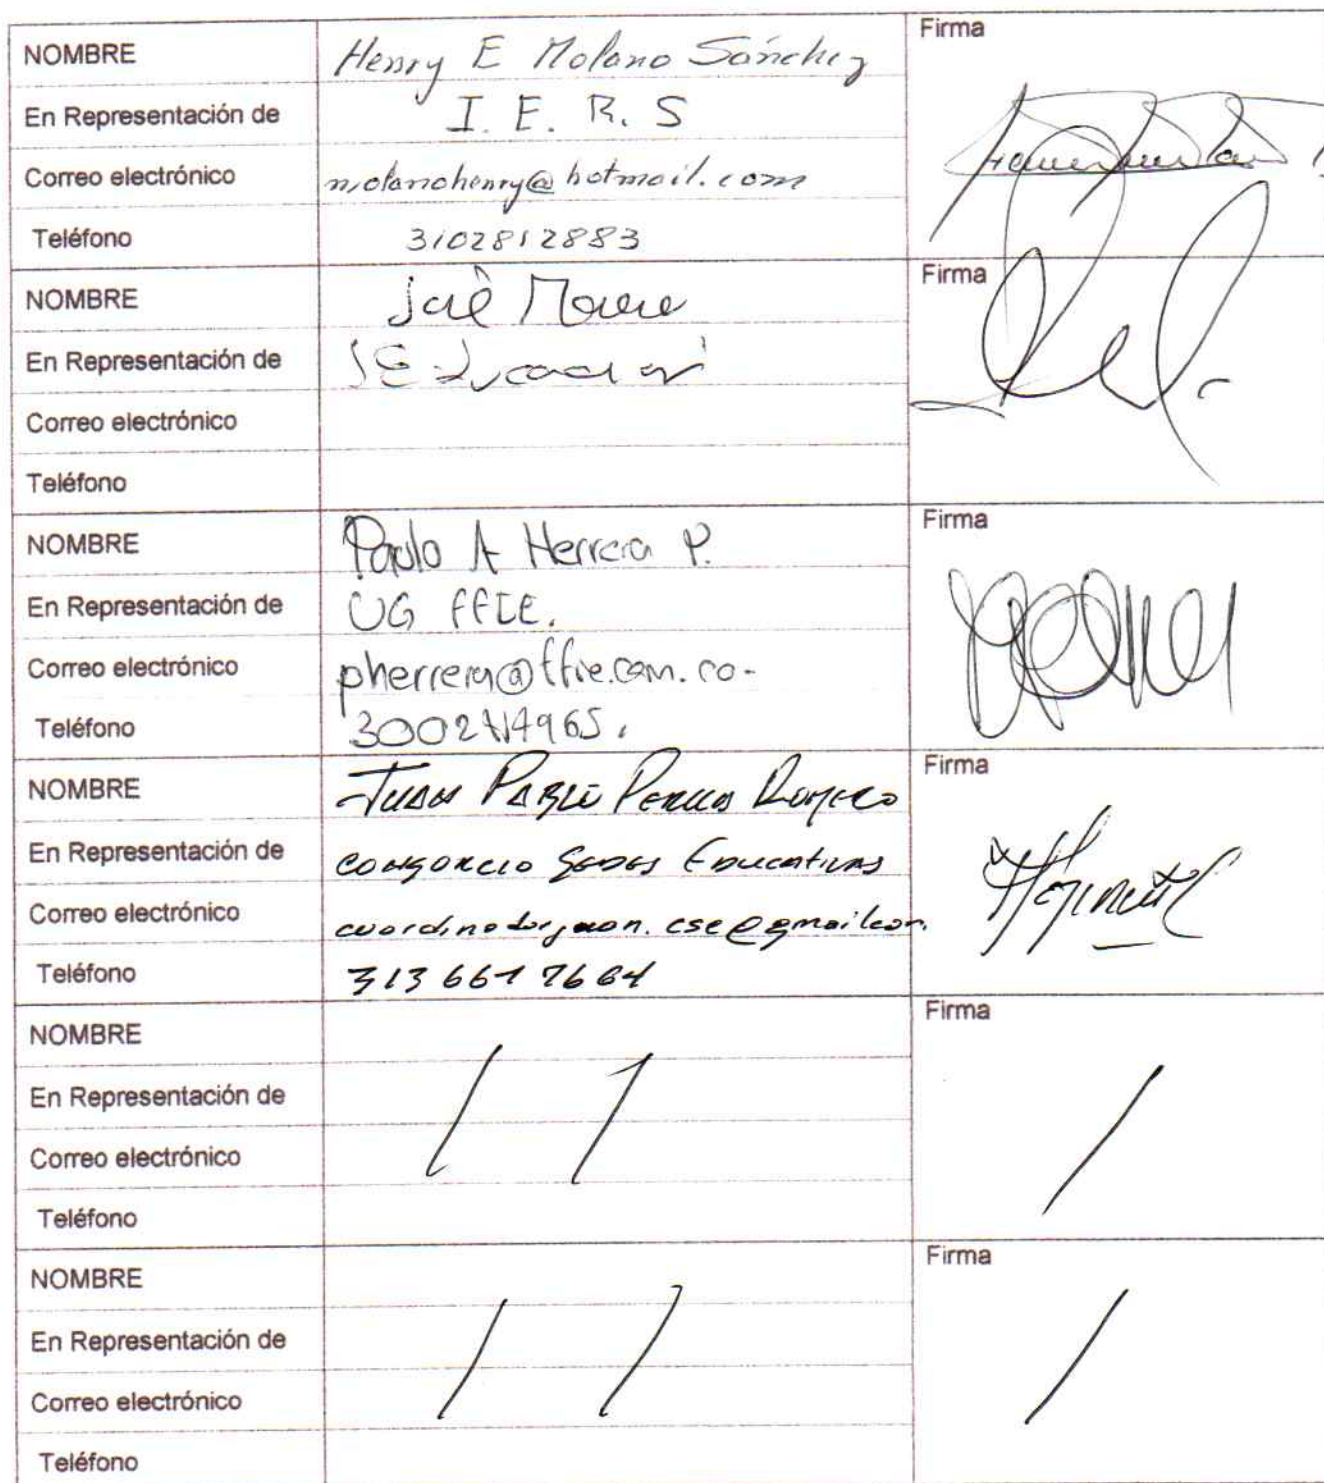 NOMBRE Henry E Molano Sánchez Firma
En Representación de I. E. R. S
Correo electrónico molanohenry@hotmail.com
Teléfono 3102812883
NOMBRE José Firma
En Representación de
Correo electrónico
Teléfono
NOMBRE Paulo A Herrera P. Firma
En Representación de UG FFIE.
Correo electrónico pherrera@ffie.com.co-
Teléfono
NOMBRE Juan Pablo Firma
En Representación de Consorcio Sedes Educativas
Correo electrónico
Teléfono 313 661 7664
NOMBRE Firma
En Representación de
Correo electrónico
Teléfono
NOMBRE Firma
En Representación de
Correo electrónico
Teléfono